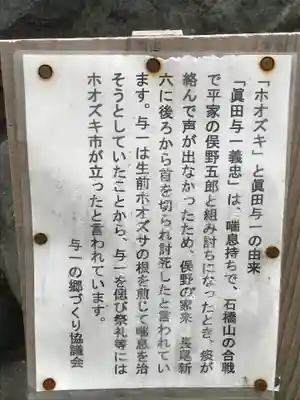 「ホオズキ」と眞田与一の由来
「眞田与一義忠」は、喘息持ちで、石橋山の合戦
で平家の俣野五郎と組み討ちになったとき、痰が
絡んで声が出なかったため、俣野の家来　長尾新
六に後ろから首を切られ討死したと言われてい
ます。与一は生前ホオズサの根を煎じて喘息を治
そうとしていたことから、与一を偲び祭礼等には
ホオズキ市が立ったと言われています。
与一の郷づくり協議会